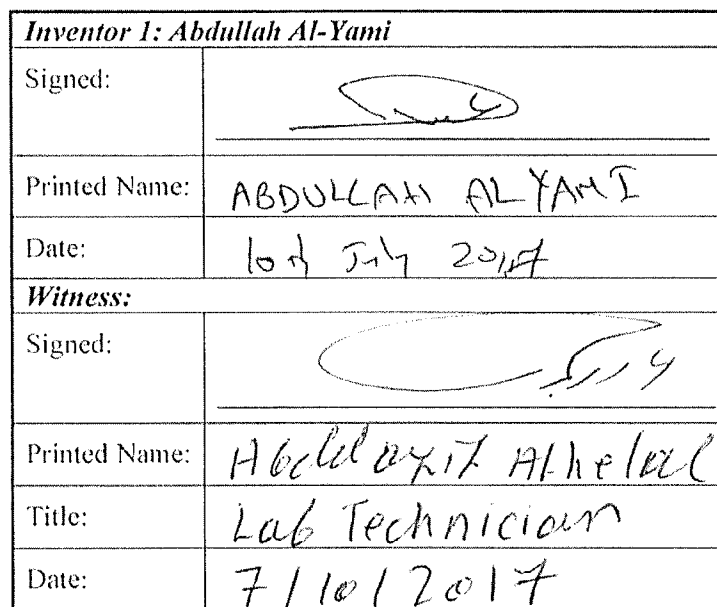 Inventor 1: Abdullah Al-Yami
Signed:
Printed Name: ABDULLAH ALYAMI
Date: 10th July 2017
Witness:
Signed:
Printed Name:
Title: Lab Technician
Date: 7/10/2017